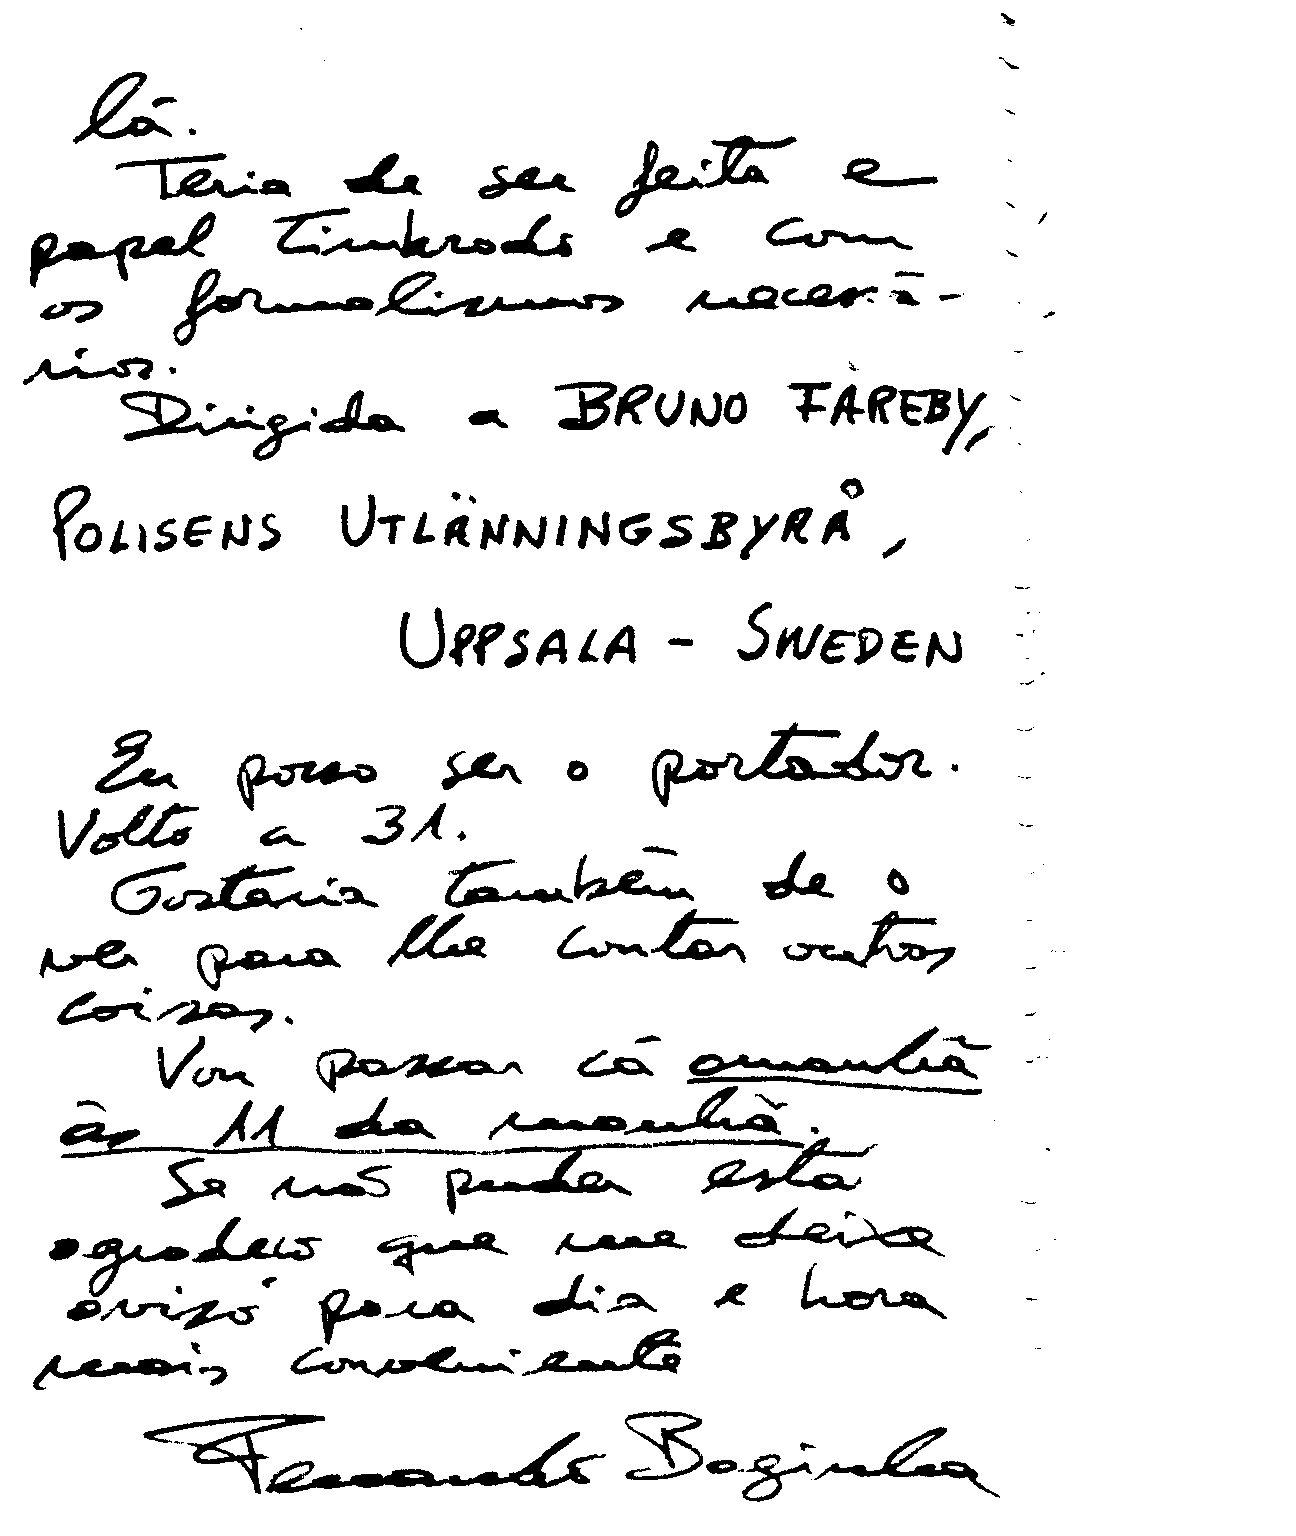 lá.
Teria de ser feita e
papel timbrado e com
os formalismos necessá-
rios.
Dirigida a BRUNO FÄREBY,
POLISENS UTLÄNNINGSBYRÅ,
UPPSALA - SWEDEN
Eu posso ser o portador.
Volto a 31.
Gostaria também de o
ver para lhe contar outras
coisas.
Vou passar cá amanhã
às 11 da manhã.
Se não puder esta
agradeço que me deixe
aviso para dia e hora
mais conveniente
Fernando Baginha